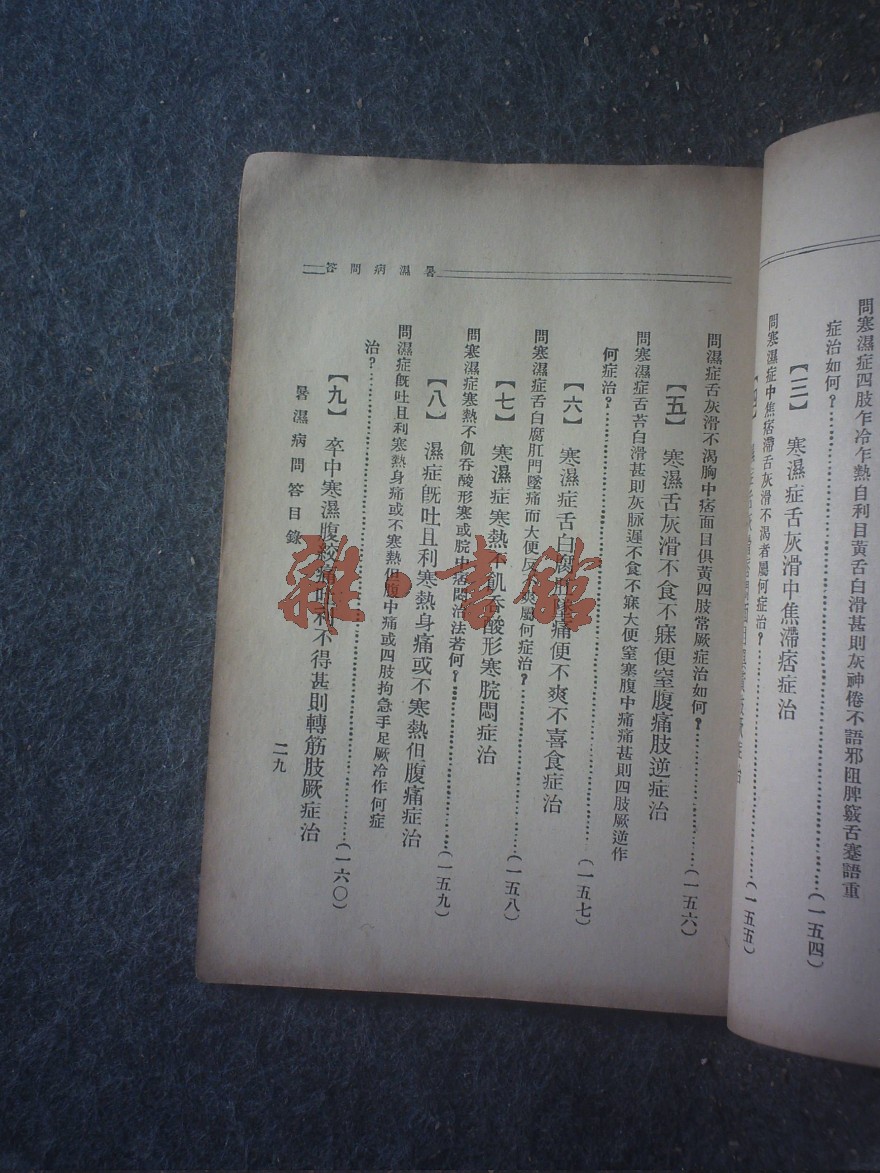 問寒濕症四肢乍冷乍熱自利目黃舌白滑甚則灰神倦不語邪阻脾竅舌蹇語重
症治如何？……(一五四)
【三】 寒濕症舌灰滑中焦滯痞症治
問寒濕症中焦痞滯舌灰滑不渴者屬何症治？……(一五五)
暑濕病問答
問濕症舌灰滑不渴胸中痞面目俱黃四肢常厥症治如何？……(一五六)
【五】 寒濕舌灰滑不食不寐便窒腹痛肢逆症治
問寒濕症舌苦白滑甚則灰脉遲不食不寐大便窒塞腹中痛痛甚則四肢厥逆作
何症治？……(一五七)
【六】 寒濕症舌白腐肛墜痛便不爽不喜食症治
問寒濕症舌白腐肛門墜痛而大便反不爽屬何症治？……(一五八)
【七】 寒濕症寒熱不飢吞酸形寒脘悶症治
問寒濕症寒熱不飢吞酸形寒或脘中痞悶治法若何？……(一五九)
【八】 濕症既吐且利寒熱身痛或不寒熱但腹痛症治
問濕症既吐且利寒熱身痛或不寒熱但腹中痛或四肢拘急手足厥冷作何症
治？……(一六〇)
【九】 卒中寒濕腹絞痛吐利不得甚則轉筋肢厥症治
暑濕病問答目錄
二九
雜·書館